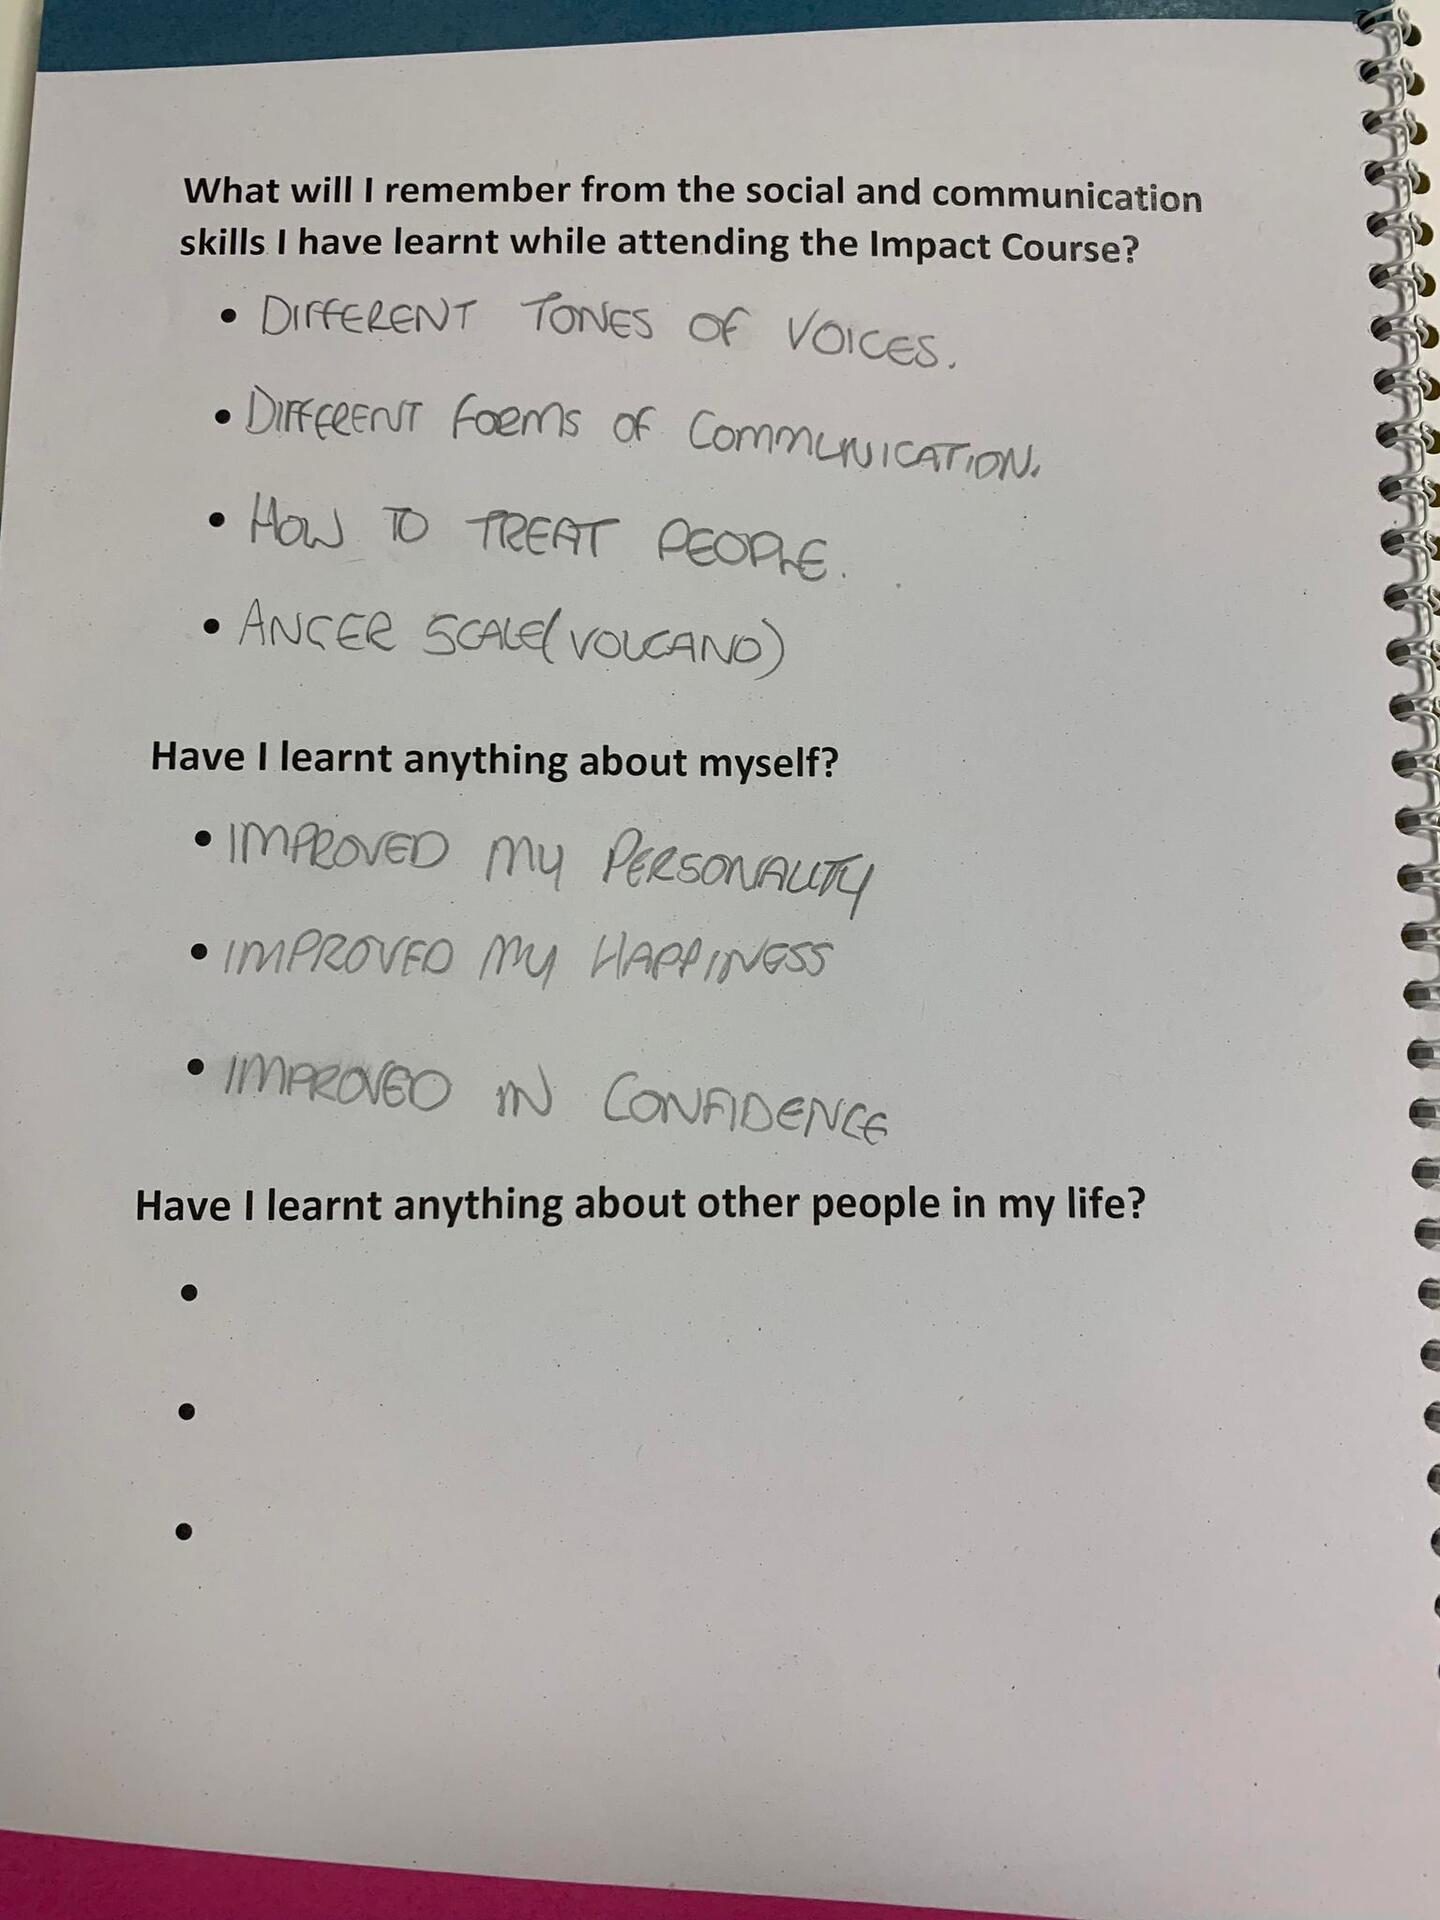 What will I remember from the social and communication
skills I have learnt while attending the Impact Course?
• DIFFERENT TONES OF VOICES.
• DIFFERENT FORMS OF COMMUNICATION.
• HOW TO TREAT PEOPLE.
• ANGER SCALE(VOLCANO)
Have I learnt anything about myself?
• IMPROVED MY PERSONALITY
• IMPROVED MY HAPPINESS
• IMPROVED IN CONFIDENCE
Have I learnt anything about other people in my life?
•
•
•